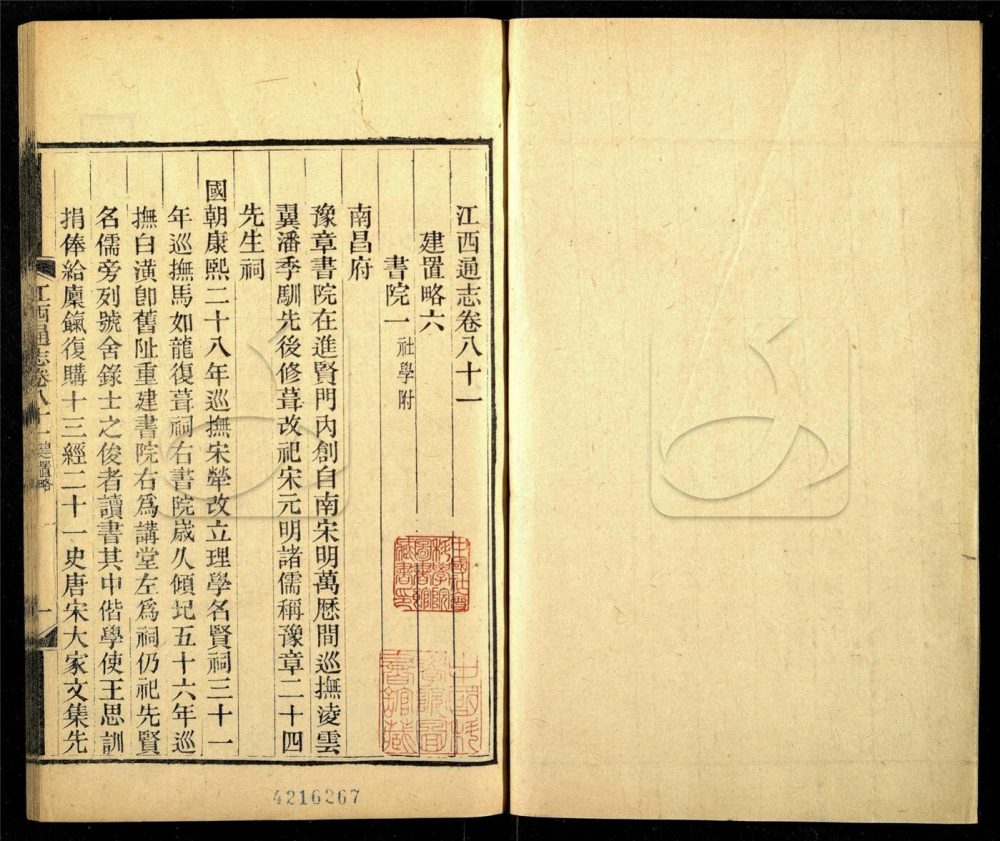 江西通志卷八十一
建置略六
書院一 社學附
南昌府
豫章書院在進賢門內創自南宋明萬歷間巡撫淩雲
翼潘季馴先後修葺改祀宋元明諸儒稱豫章二十四
先生祠
國朝康熙二十八年巡撫宋犖改立理學名賢祠三十一
年巡撫馬如龍復葺祠右書院歲久傾圮五十六年巡
撫白潢卽舊阯重建書院右爲講堂左爲祠仍祀先賢
名儒旁列號舍錄士之俊者讀書其中偕學使王思訓
捐俸給廩餼復購十三經二十一史唐宋大家文集先
江西通志卷八十一 建置略
一
中國社會
科學院
圖書館
藏書印
中國科
學院圖
書館藏
4216267